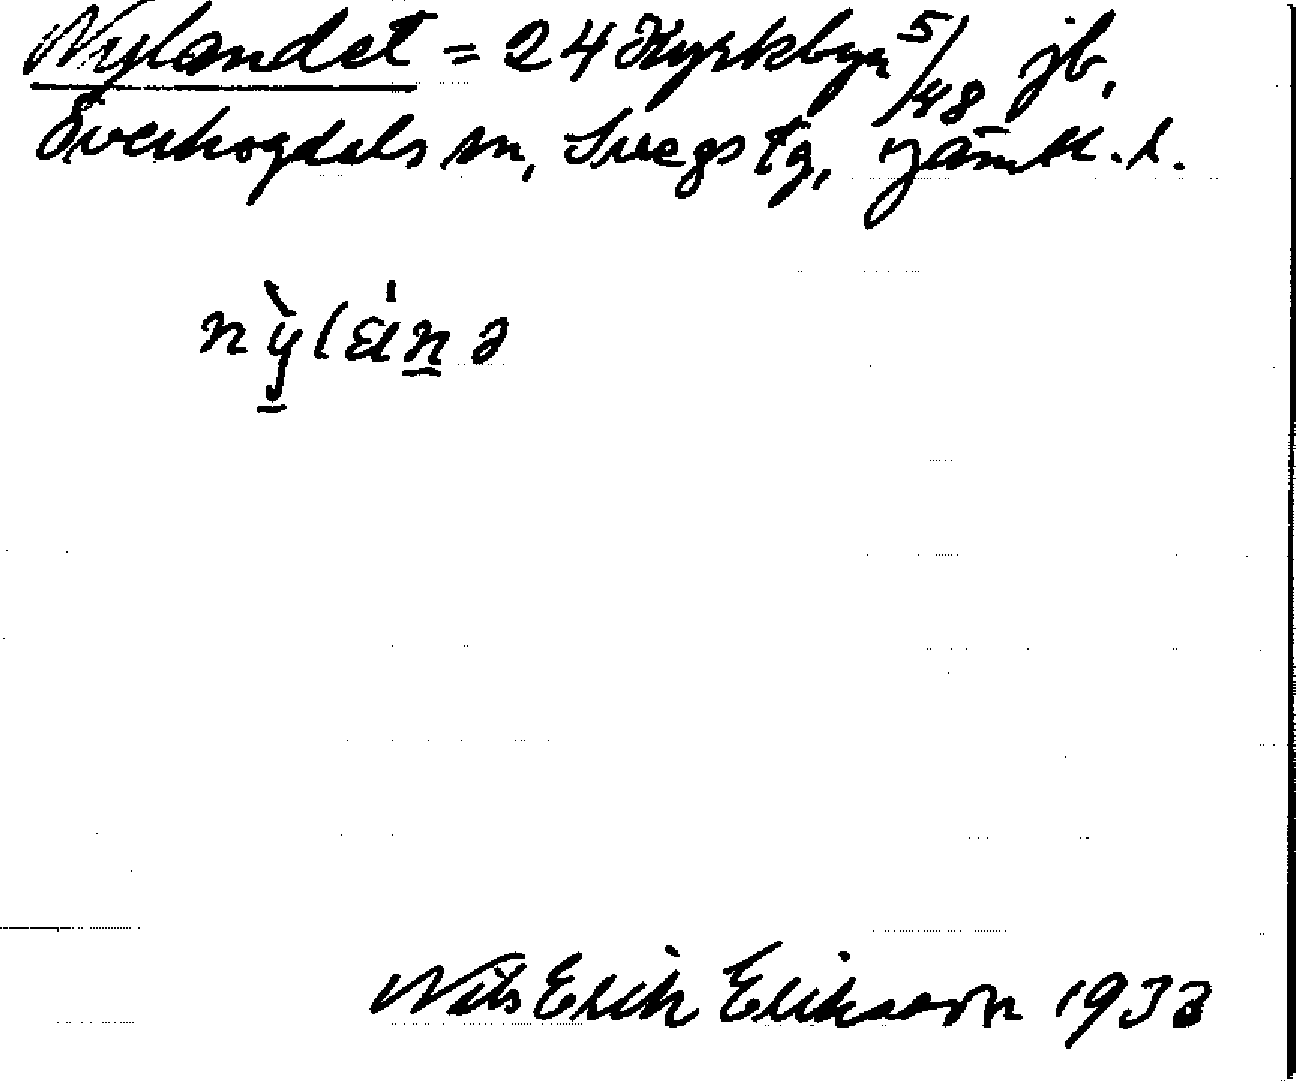 Nylandet = 24 Kyrkbyn 5/48 jb,
Överhogdals sn, Svegs tg, Jämtl. l.
Nils Erik Eriksson 1933